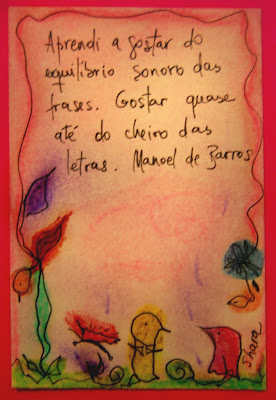 Aprendi a gostar do
equilíbrio sonoro das
frases. Gostar quase
até do cheiro das
letras. Manoel de Barros
Shara